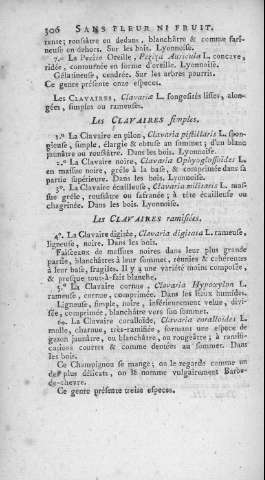 306 SANS FLEUR NI FRUIT.
rente; roussâtre en dedans, blanchâtre & comme fari-
neuse en dehors. Sur les bois. Lyonnoise.
7.º La Pezize Oreille, Peziza Auricula L. concave,
ridée, contournée en forme d'oreille. Lyonnoise.
Gélatineuse, cendrée. Sur les arbres pourris.
Ce genre présente onze especes.
Les CLAVAIRES, Clavaria L. fongosités lisses, alon-
gées, simples ou rameuses.
Les CLAVAIRES simples.
1.º La Clavaire en pilon, Clavaria pistillaris L. spon-
gieuse, simple, élargie & obtuse au sommet; d'un blanc
jaunâtre ou roussâtre. Dans les bois. Lyonnoise.
2.º La Clavaire noire, Clavaria Ophyoglossoides L.
en massue noire, grêle à la base, & comprimée dans sa
partie supérieure. Dans les bois. Lyonnoise.
3.º La Clavaire écailleuse, Clavaria militaris L. mas-
sue grêle, roussâtre ou safranée; à tête écailleuse ou
chagrinée. Dans les bois. Lyonnoise.
Les CLAVAIRES ramifiées.
4.º La Clavaire digitée, Clavaria digitata L. rameuse,
ligneuse, noire. Dans les bois.
Faisceaux de massues noires dans leur plus grande
partie, blanchâtres à leur sommet, réunies & cohérentes
à leur base, fragiles. Il y a une variété moins composée,
& presque tout-à-fait blanche.
5.º La Clavaire cornue, Clavaria Hypoxylon L.
rameuse, cornue, comprimée. Dans les lieux humides.
Ligneuse, simple, noire, inférieurement velue, divi-
sée, comprimée, blanchâtre vers son sommet.
6o. La Clavaire coralloïde, Clavaria coralloides L.
molle, charnue, très-ramifiée, formant une espece de
gazon jaunâtre, ou blanchâtre, ou rougeâtre; à rami-
fications courtes & comme dentées au sommet. Dans
les bois.
Ce Champignon se mange; on le regarde comme un
des plus délicats, on le nomme vulgairement Barbe-
de-chevre.
Ce genre présente treize especes.